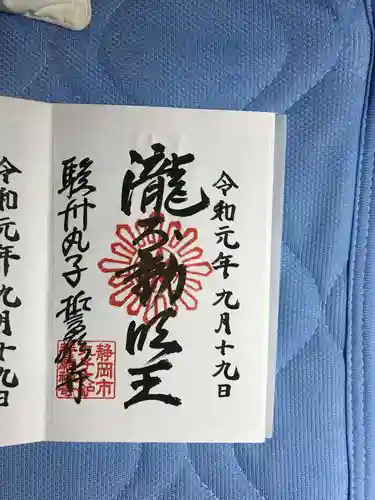 令和元年九月十九日
瀧不動明王
駿州丸子 誓願寺
静岡市
令和元年九月十九日